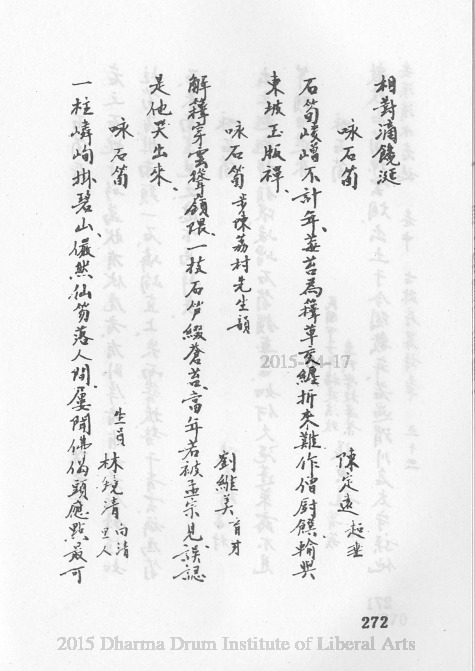 相對滴饞涎
詠石筍
陳定遠 起垂
石筍崚嶒不計年莓苔為籜草交纏折來難作僧厨饌輸與
東坡玉版禪
詠石筍 步陳荔村先生韻
劉維美 育才
解籜穿雲聳嶺隈一枝石笋綴蒼苔當年若被孟宗見誤認
是他哭出來
詠石筍
生員 林鏡清 向清 里人
一柱嶙峋掛碧山儼然仙筍落人間屢聞佛偈頭應點最可
2015-04-17
272
2015 Dharma Drum Institute of Liberal Arts